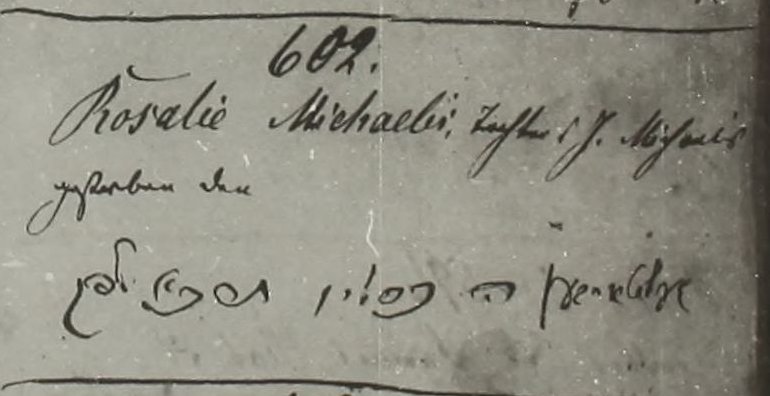 602.
Rosalie Michaelis, Tochter d J. Michaelis
gestorben den
ה' כסליו לפק